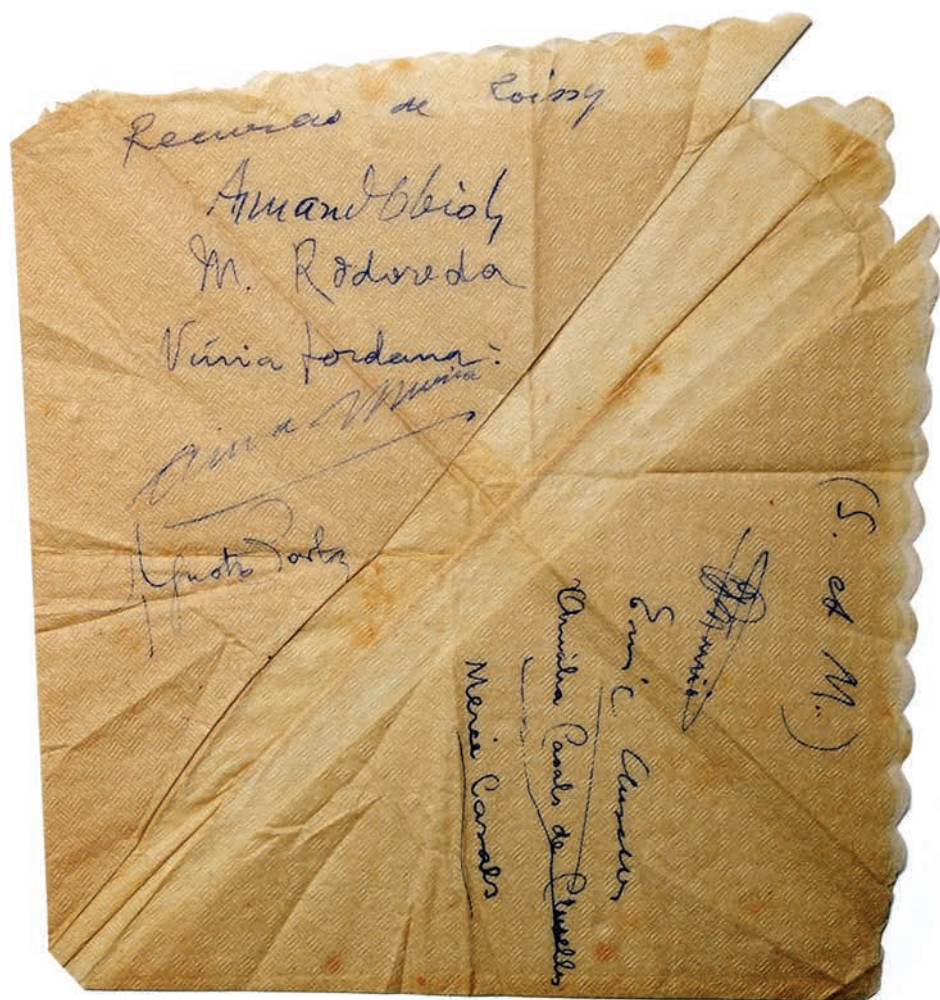 de Roissy
Armand Obiols
M. Rodoreda
Vínia Jordana
Anna Murià
Agustí Bartra
(S. et M.)
Enric Cluselles
Amàlia Casals de Cluselles
Mercè Casals